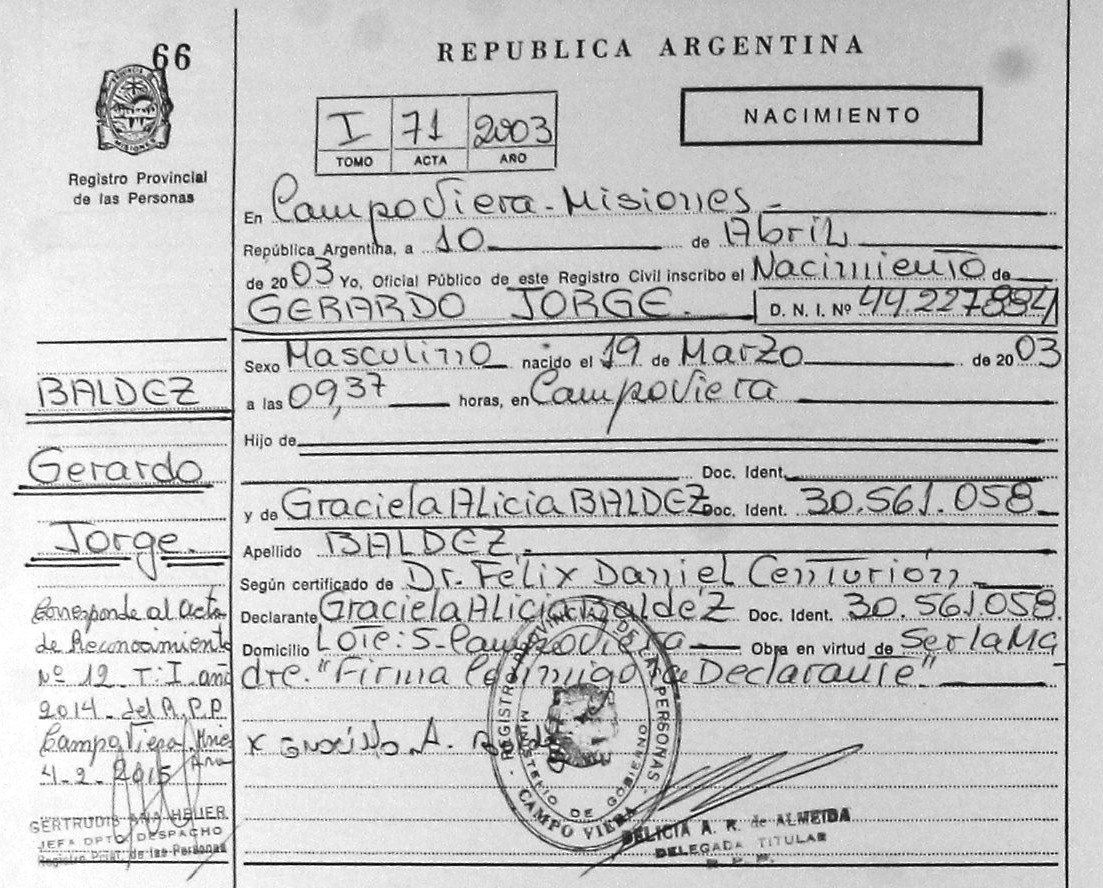 66
PROVINCIA DE
MISIONES
Registro Provincial
de las Personas
REPUBLICA ARGENTINA
I 71 2003
TOMO ACTA AÑO
NACIMIENTO
En Campo Viera - Misiones -
República Argentina, a 10 de Abril
de 2003 Yo, Oficial Público de este Registro Civil inscribo el Nacimiento de
GERARDO JORGE. D. N. I. Nº 44.227.884
Sexo Masculino nacido el 19 de Marzo de 2003
a las 09,37 horas, en Campo Viera
Hijo de
Doc. Ident.
y de Graciela Alicia BALDEZ Doc. Ident. 30.561.058
Apellido BALDEZ.
Según certificado de Dr. Félix Daniel Centurión
Declarante Graciela Alicia Baldéz Doc. Ident. 30.561.058.
Domicilio Lote: 5 - Campo Viera Obra en virtud de Ser la Ma
dre. "Firma Conmigo la Declarante"
BALDEZ
Gerardo
Jorge.
Corresponde al Acta
de Reconocimiento
Nº 12 T: I. año
2014 del R.P.P
Campo Viera, Mnes
4-2-2015
GERTRUDIS ANA HEIJER
JEFA DPTO DESPACHO
Registro Prov. de las Personas
x Graciela A. Baldez
REGISTRO PROVINCIAL DE LAS PERSONAS
MINISTERIO DE GOBIERNO
CAMPO VIERA
DELICIA A. R. de ALMEIDA
DELEGADA TITULAR
R. P. P.